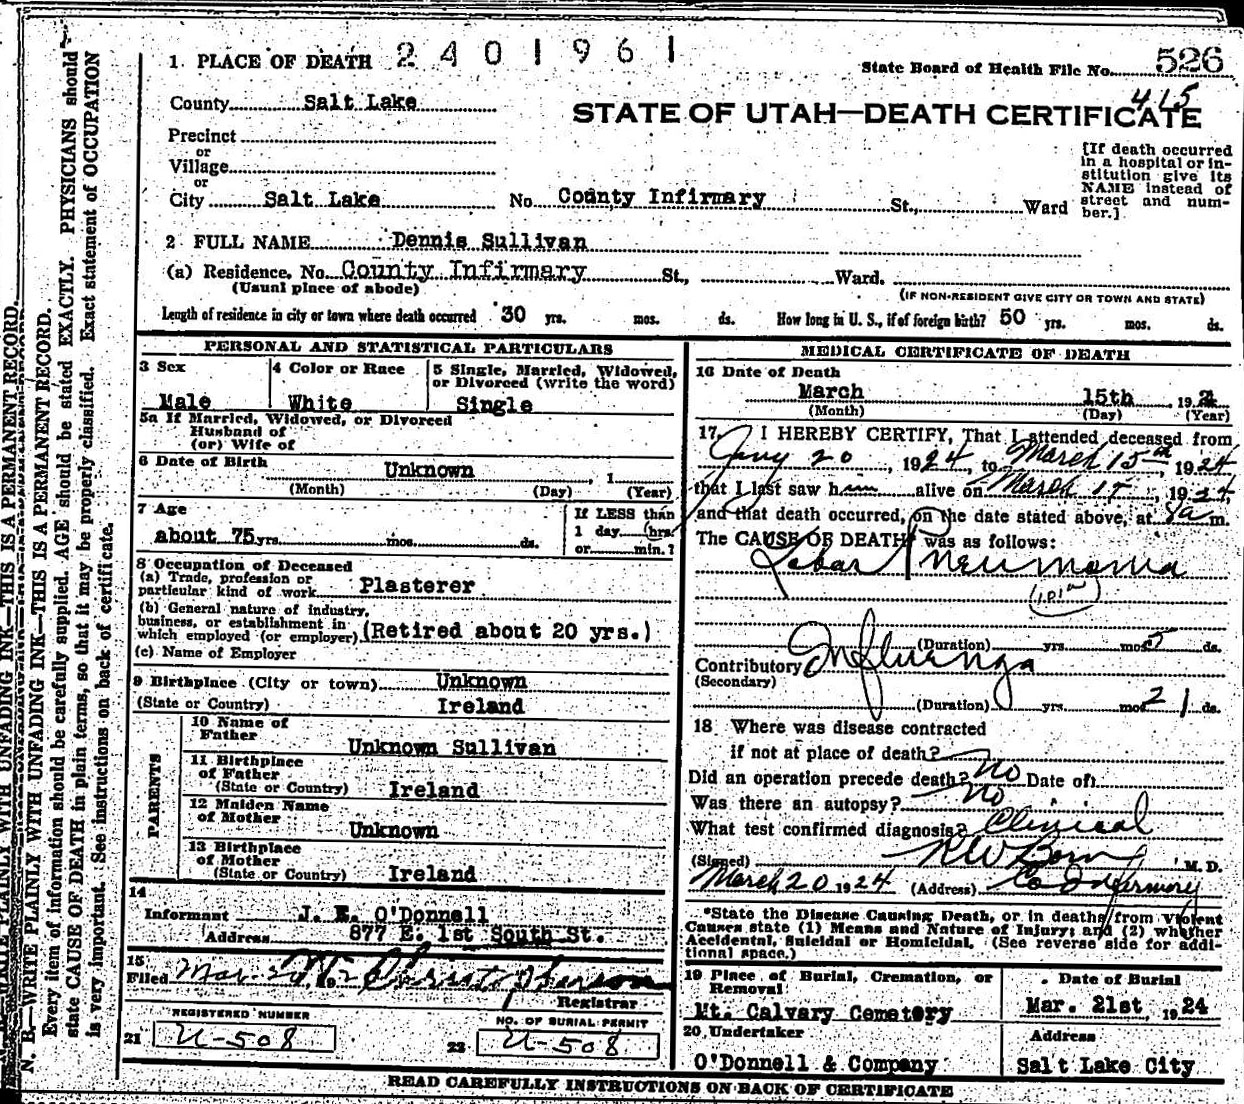 2401961
State Board of Health File No. 526
415
1. PLACE OF DEATH
County Salt Lake
STATE OF UTAH—DEATH CERTIFICATE
Precinct
or
Village
or
City Salt Lake No. County Infirmary St., Ward
[If death occurred
in a hospital or in-
stitution give its
NAME instead of
street and num-
ber.]
2 FULL NAME Dennis Sullivan
(a) Residence. No. County Infirmary St., Ward.
(Usual place of abode)
(IF NON-RESIDENT GIVE CITY OR TOWN AND STATE)
Length of residence in city or town where death occurred 30 yrs. mos. ds. How long in U. S., if of foreign birth? 50 yrs. mos. ds.
PERSONAL AND STATISTICAL PARTICULARS
3 Sex
Male
4 Color or Race
White
5 Single, Married, Widowed,
or Divorced (write the word)
Single
5a If Married, Widowed, or Divorced
Husband of
(or) Wife of
6 Date of Birth
Unknown , 1
(Month) (Day) (Year)
7 Age
about 75 yrs. mos. ds.
If LESS than
1 day hrs.
or min.?
8 Occupation of Deceased
(a) Trade, profession or
particular kind of work Plasterer
(b) General nature of industry,
business, or establishment in
which employed (or employer) (Retired about 20 yrs.)
(c) Name of Employer
9 Birthplace (City or town) Unknown
(State or Country) Ireland
PARENTS
10 Name of
Father
Unknown Sullivan
11 Birthplace
of Father
(State or Country) Ireland
12 Maiden Name
of Mother
Unknown
13 Birthplace
of Mother
(State or Country) Ireland
14
Informant J. E. O'Donnell
Address 877 E. 1st South St.
15
Filed Mar. 192
Registrar
REGISTERED NUMBER
21 U-508
NO. OF BURIAL PERMIT
22 U-508
MEDICAL CERTIFICATE OF DEATH
16 Date of Death
March 15th , 192
(Month) (Day) (Year)
17. I HEREBY CERTIFY, That I attended deceased from
Jany 20, 1924, to March 15th, 1924
that I last saw him alive on March 15, 1924,
and that death occurred, on the date stated above, at 8a m.
The CAUSE OF DEATH was as follows:
Lobar Pneumonia
(Duration) yrs. mos. 5 ds.
Contributory Influenza
(Secondary)
(Duration) yrs. mos. 21 ds.
18 Where was disease contracted
if not at place of death?
Did an operation precede death? No Date of
Was there an autopsy? No
What test confirmed diagnosis? Clinical
(Signed) M. D.
March 20 1924 (Address) Co Infirmary
*State the Disease Causing Death, or in deaths from Violent
Causes state (1) Means and Nature of Injury; and (2) whether
Accidental, Suicidal or Homicidal. (See reverse side for addi-
tional space.)
19 Place of Burial, Cremation, or
Removal
Mt. Calvary Cemetery
Date of Burial
Mar. 21st, 1924
20 Undertaker
O'Donnell & Company
Address
Salt Lake City
READ CAREFULLY INSTRUCTIONS ON BACK OF CERTIFICATE
N. B.—WRITE PLAINLY WITH UNFADING INK—THIS IS A PERMANENT RECORD.
Every item of information should be carefully supplied. AGE should be stated EXACTLY. PHYSICIANS should
state CAUSE OF DEATH in plain terms, so that it may be properly classified. Exact statement of OCCUPATION
is very important. See instructions on back of certificate.